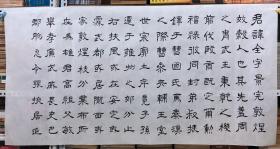 君諱全字景完敦煌
效穀人也其先蓋周
之冑武王秉乾之機
翦伐殷商既定爾勳
福祿攸同封弟叔振
鐸于曹國因氏焉秦漢
之際曹參夾輔王室
世宗廓土斥竟子孫
遷于雍州之郊分止
右扶風或在安定或
處武都或居隴西或
家敦煌枝分葉布所
在為雄君高祖父敏
舉孝廉武威長史巴
郡朐忍令張掖居延